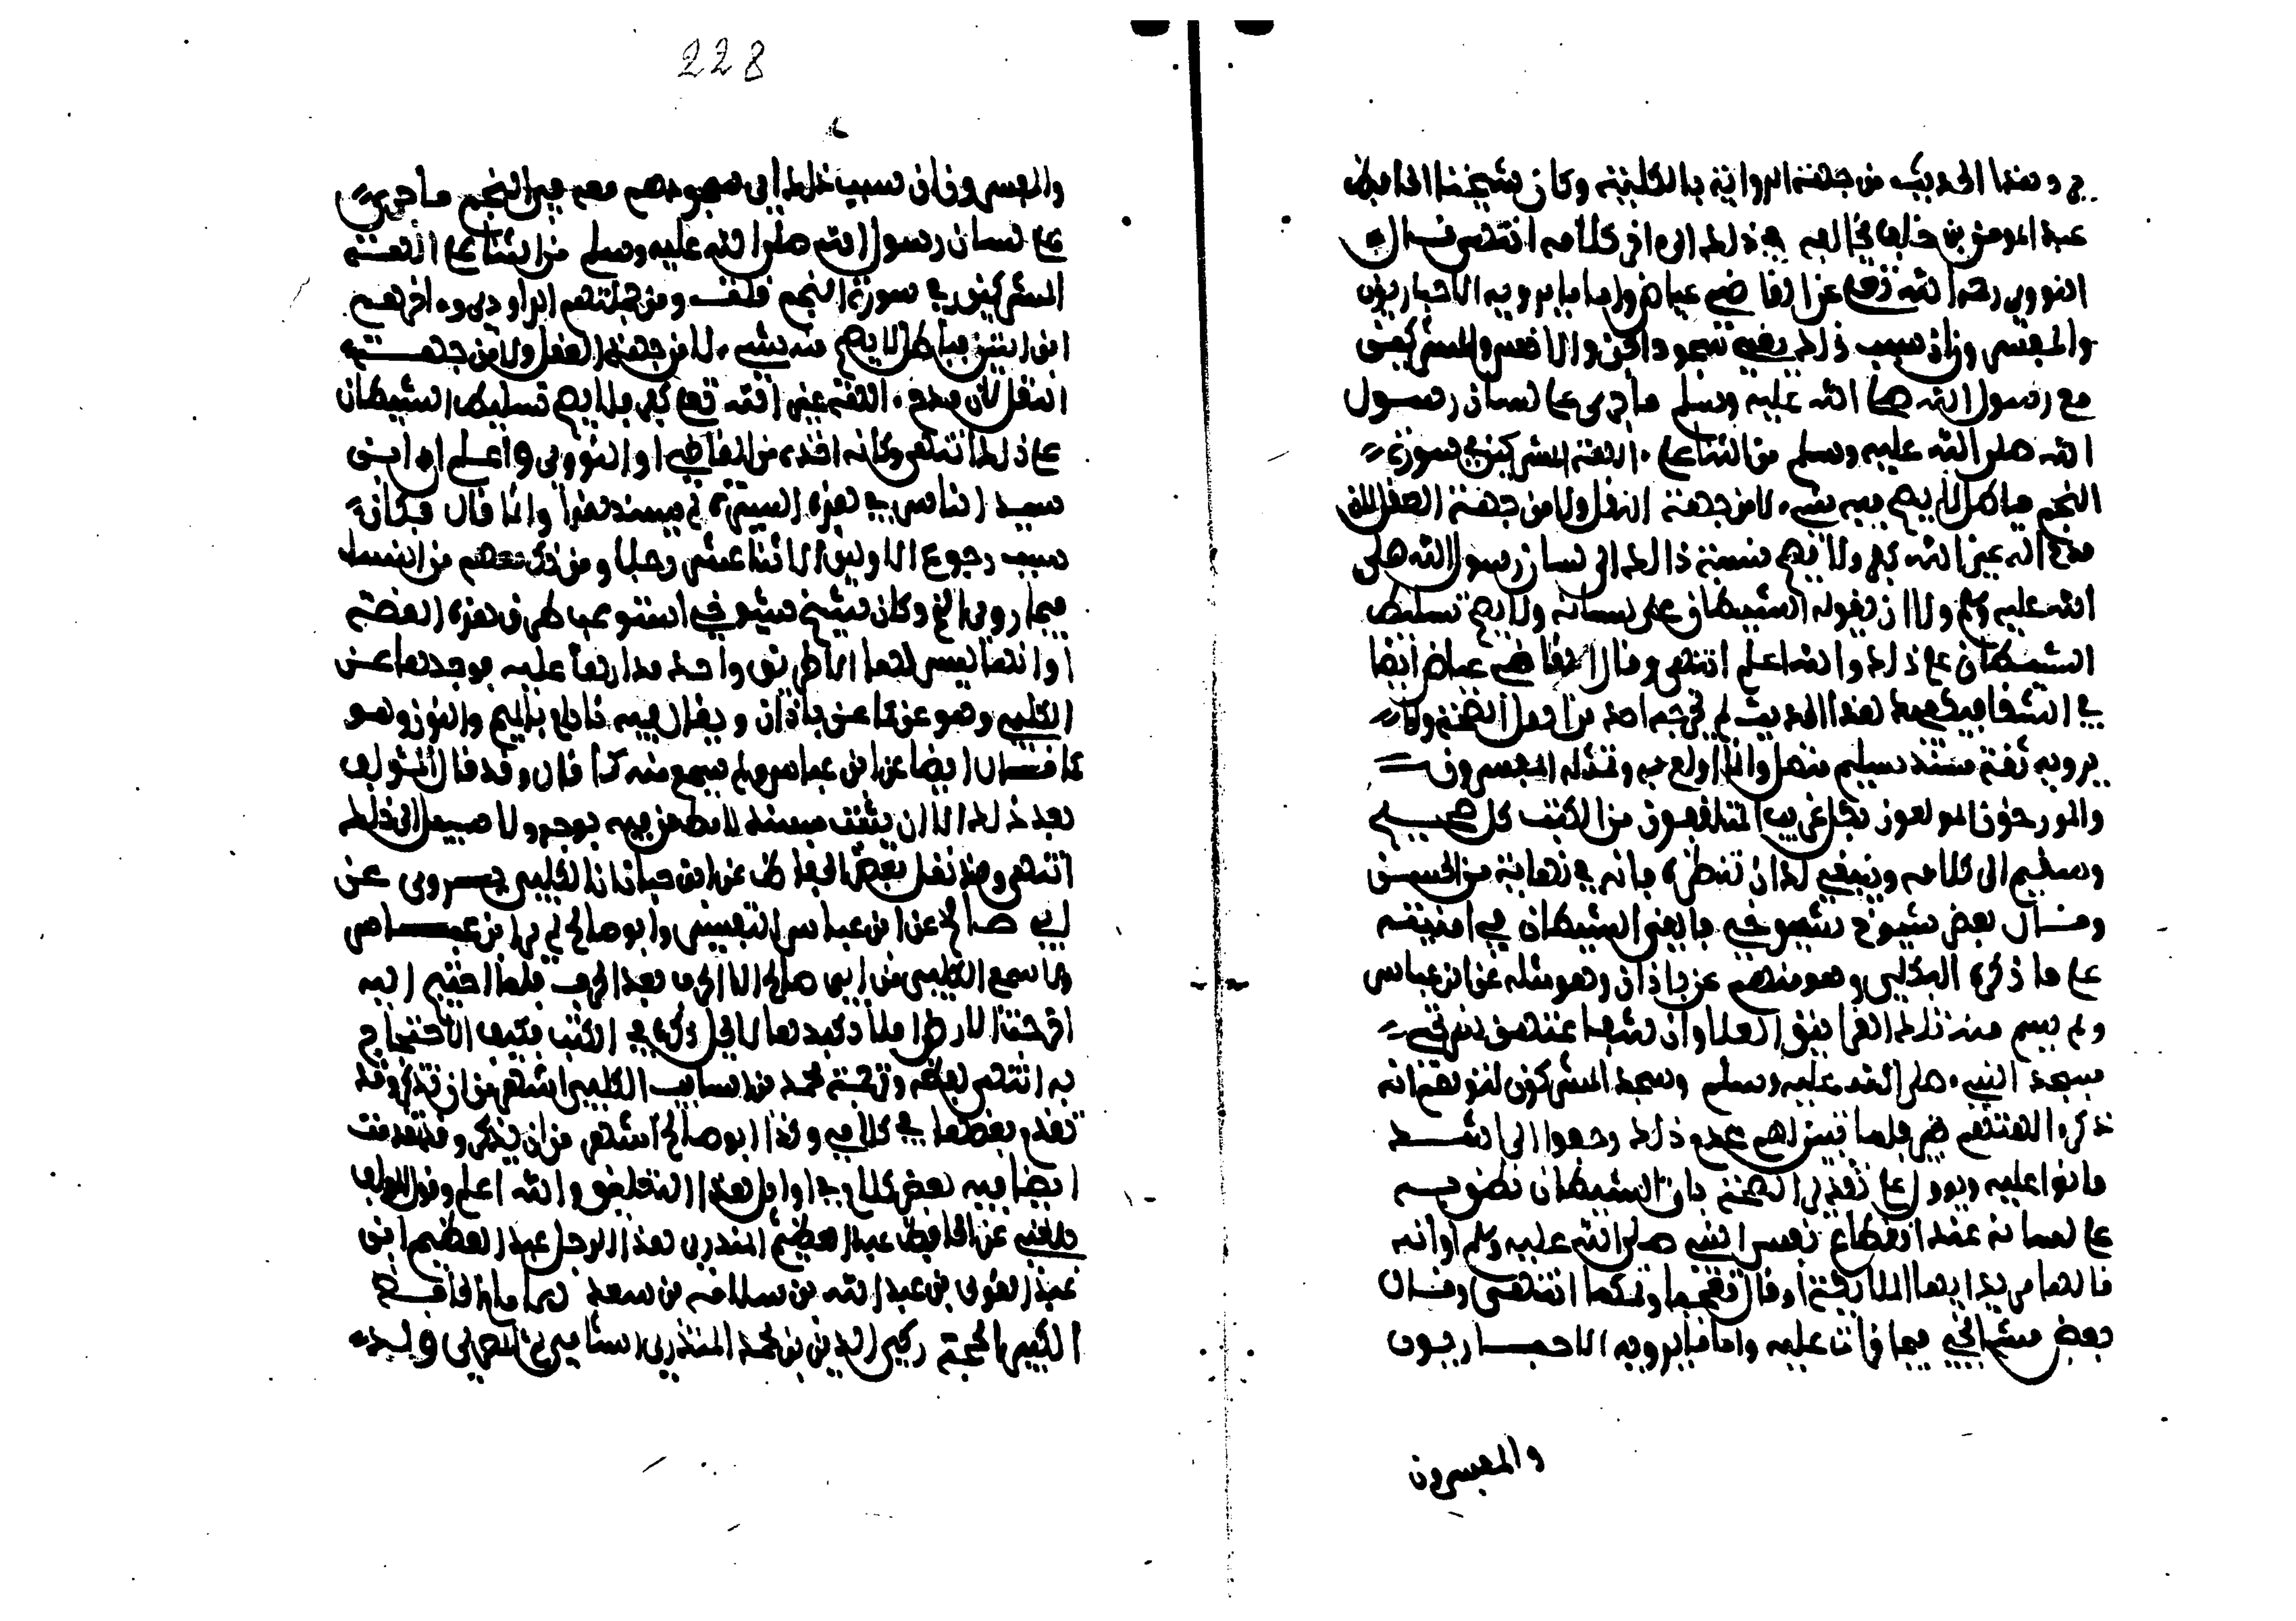 رد هذا الحديث من جهة الرواية بالكلية وكان شيخنا الحافظ
عبد المومن بن خلف يخالفه في ذلك الى اخر كلامه انتهى قال
النووي رحمه الله نقلا عن القاضي عياض واما ما يرويه الاخباريون
والمفسرون ان سبب ذلك يعني سجود الجن والانس والمشركين
مع رسول الله صلى الله عليه وسلم ما جرى على لسان رسول
الله صلى الله عليه وسلم من الثنا على الهة المشركين في سورة
النجم فباطل لا يصح فيه شيء لا من جهة النقل ولا من جهة العقل لان
مدح اله غير الله كفر ولا يصح نسبة ذالك الى لسان رسول الله صلى
الله عليه وسلم ولا ان يقوله الشيطان على لسانه ولا يصح تسليط
الشيطان على ذلك والله اعلم انتهى وقال القاضي عياض ايضا
في الشفا فيكفيك هذا الحديث لم يخرجه احد من اهل الصحة ولا
يرويه ثقة بسند سليم متصل وانما اولع به وبمثله المفسرون
والمورخون المولعون بكل غريب المتلقفون من الكتب كل صحيح
وسقيم الى كلامه وينبغي لك ان تنظره فانه في نهاية من الحسن
وقال بعض شيوخ شيوخي ما يعني الشيطان في امنيته
على ما ذكره الكلبي وهو متهم عن باذان وهو مثله عن ابن عباس
ولم يسم منه تلك الغرانيق العلا وان شفاعتهن لترتجى
فسجد النبي صلى الله عليه وسلم وسجد المشركون لتوهمهم انه
ذكر الهتهم بخير فلما تبين لهم عدم ذلك رجعوا الى اشد ما
كانوا عليه ويوول على تقدير الصحة بان الشيطان نطق به
على لسانه عند انقطاع نفس النبي صلى الله عليه وسلم او انه
قالها مريدا بها الملايكة او قال تعجبا وتهكما انتهى وقال
بعض مشايخي فيما قرات عليه واما ما يرويه الاخباريون
والمفسرون
228
والمفسرون ان سبب ذلك اي سجودهم معه في النجم ما جرى
على لسان رسول الله صلى الله عليه وسلم من الثنا على الهة
المشركين في سورة النجم قلت ومن جملتهم الداودي وءاخرهم
ابن التين فباطل لا يصح منه شيء لا من جهة العقل ولا من جهة
النقل لان مدح الهة غير الله تعالى كفر فلا يصح تسليط الشيطان
على ذلك انتهى وكانه اخذه من القاضي او النووي واعلم ان ابن
سيد الناس في هذه السيرة لم يسند هذا وانما قال فكان
سبب رجوع الاولين الاثنا عشر رجلا ومن ذكر معهم من النسا
فيما روي الخ وكان شيخ شيوخي استوعب طرق هذه القصة
او انها ليس لها الا طريق واحد مدارها عليه فوجدها عن
الكلبي وهو عن باذان ويقال فيه باذام بالميم والنون وهو
كما قال ايضا عن ابن عباس ولم يسمع منه كذا قال وقد قال المولف
بعد ذلك الا ان يثبت بسند لا مطعن فيه بوجه ولا سبيل الى ذلك
انتهى وقد نقل بعض الحفاظ عن ابن حبان ان الكلبي يروي عن
ابي صالح عن ابن عباس التفسير وابو صالح لم ير ابن عباس
وما سمع الكلبي من ابي صالح الا الحرف بعد الحرف فلما احتيج اليه
اخرجت الارض افلاذ كبدها لا يحل ذكره في الكتب فكيف الاحتجاج
به انتهى بلفظه وترجمة محمد بن السايب الكلبي اشهر من ان تذكر وقد
تقدم بعضها في كلامي وكذا ابو صالح اشهر من ان يذكر وقد قدمت
ايضا فيه بعض كلام في اوايل هذا التعليق والله اعلم وقول المولف
بلغني عن الحافظ عبد العظيم المنذري هذا الرجل عبد العظيم ابن
عبد القوي بن عبد الله بن سلامة بن سعد الامام الحافظ
الكبير الحجة زكي الدين بن محمد المنذري الشامي ثم المصري ولد